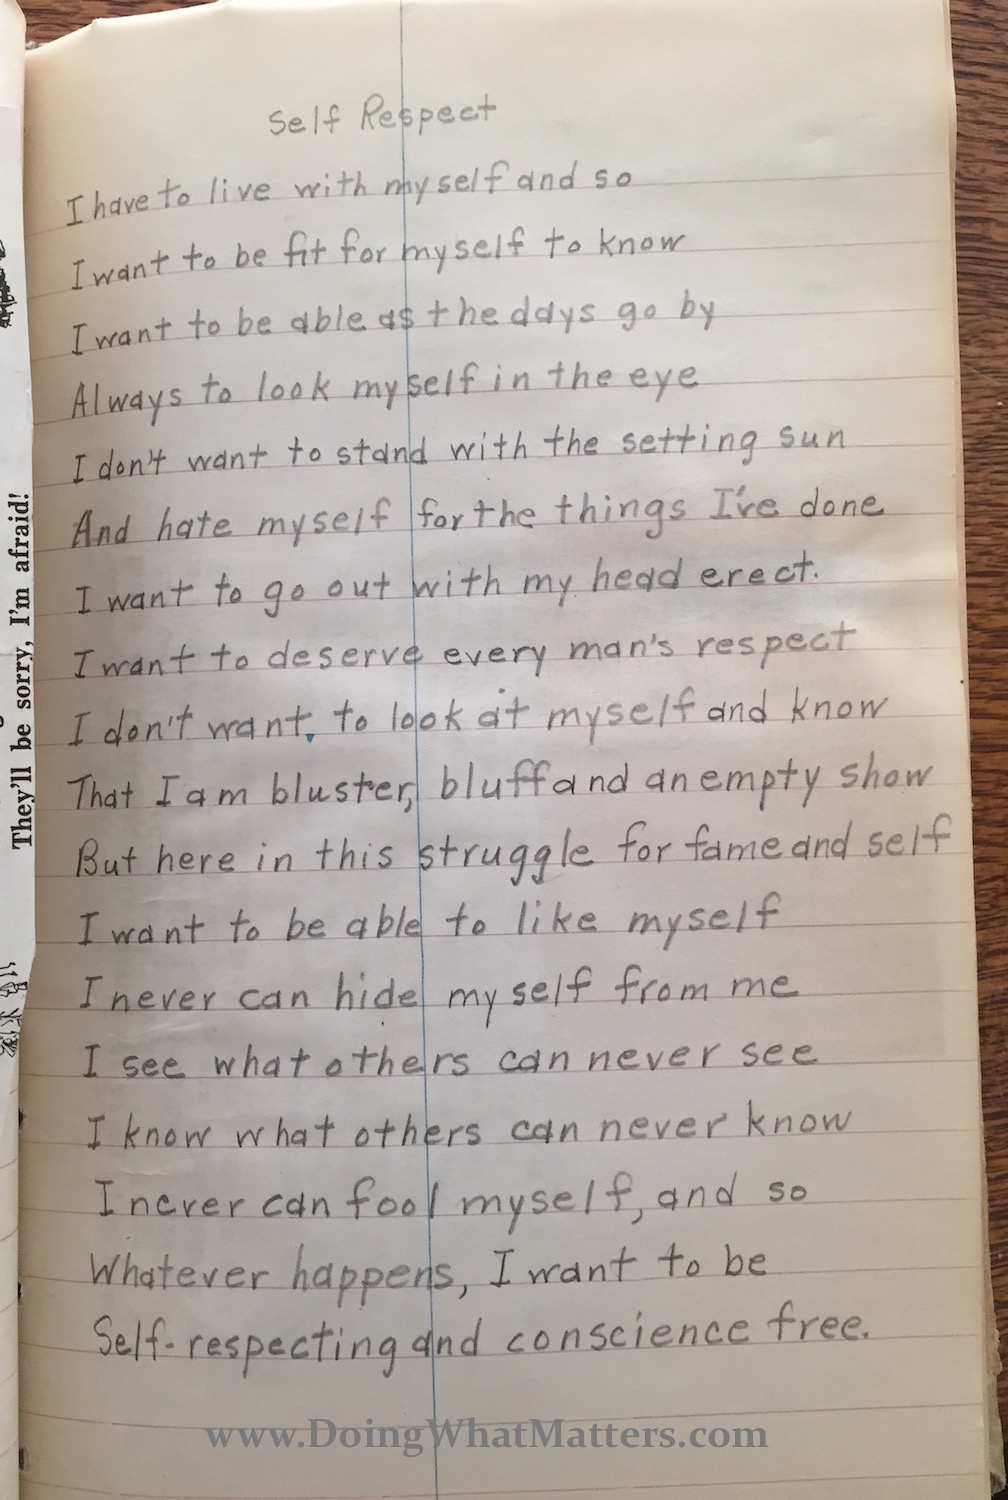 Self Respect
I have to live with myself and so
I want to be fit for myself to know
I want to be able as the days go by
Always to look myself in the eye
I don't want to stand with the setting sun
And hate myself for the things I've done
I want to go out with my head erect.
I want to deserve every man's respect
I don't want to look at myself and know
That I am bluster, bluff and an empty show
But here in this struggle for fame and self
I want to be able to like myself
I never can hide myself from me
I see what others can never see
I know what others can never know
I never can fool myself, and so
Whatever happens, I want to be
Self-respecting and conscience free.
They'll be sorry, I'm afraid!
www.DoingWhatMatters.com